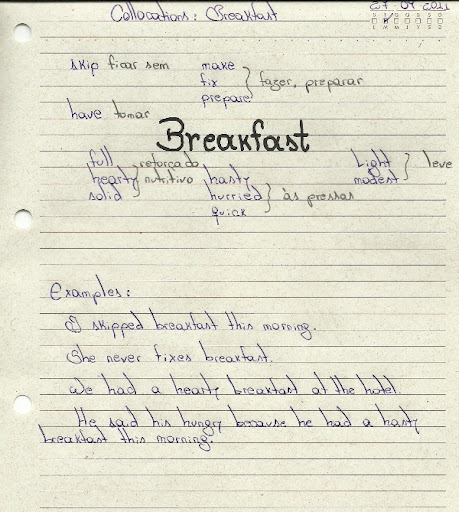 Collocations: Breakfast
skip ficar sem make
fix fazer, preparar
prepare
have tomar
Breakfast
full reforçado Light leve
hearty nutritivo hasty modest
solid hurried às pressas
quick
Examples:
I skipped breakfast this morning.
She never fixes breakfast.
We had a hearty breakfast at the hotel.
He said his hungry because he had a hasty
breakfast this morning.